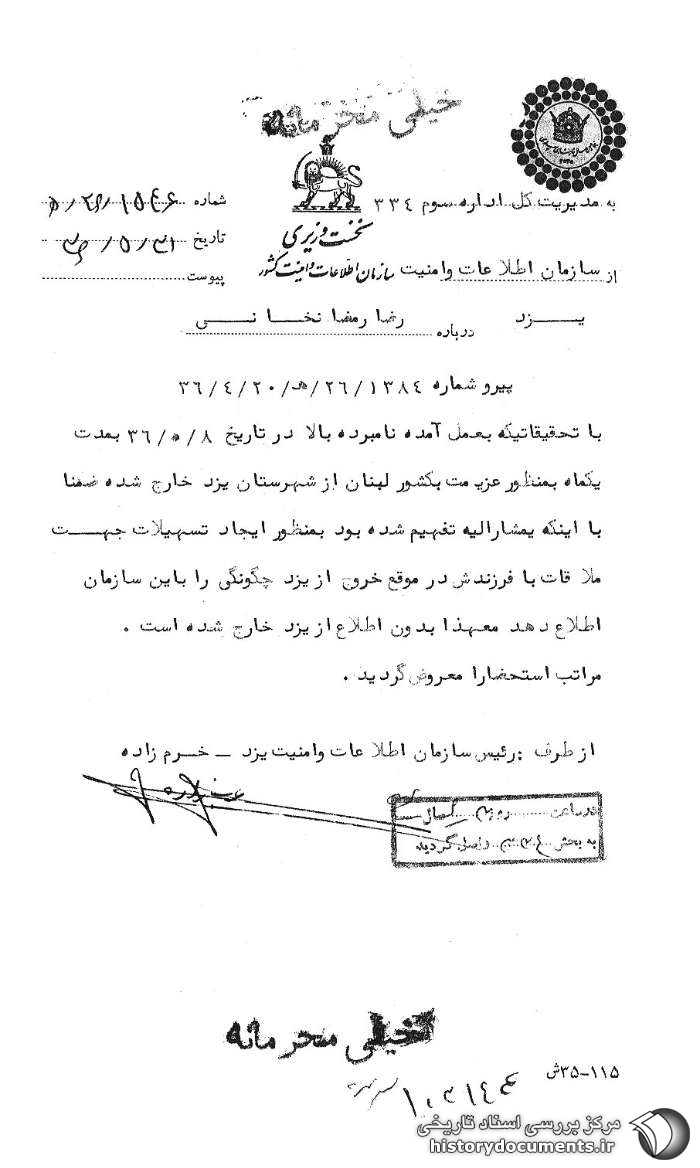 خیلی محرمانه
به مدیریت کل اداره سوم ۳۳۴
شماره ۱۵۴۶/۲۶/ه
نخست وزیری
تاریخ ۳۶/۵/۳۱
سازمان اطلاعات و امنیت کشور
از سازمان اطلاعات وامنیت
پیوست
یــزد
درباره رضا رمضا نخــا نــی
پیرو شماره ۱۳۸۴/۲۶/هـ/۳۶/۴/۲۰
با تحقیقاتیکه بعمل آمده نامبرده بالا در تاریخ ۳۶/۵/۸ بمدت
یکماه بمنظور عزیمت بکشور لبنان از شهرستان یزد خارج شده ضمنا
با اینکه بمشارالیه تفهیم شده بود بمنظور ایجاد تسهیلات جهــت
ملاقات با فرزندش در موقع خروج از یزد چگونگی را باین سازمان
اطلاع دهد معهذا بدون اطلاع از یزد خارج شده است .
مراتب استحضارا معروض گردید .
از طرف : رئیس سازمان اطلاعات وامنیت یزد – خرم زاده
در ساعت روز سال
به بخش ۳۳۴ واصل گردید
خیلی محرمانه
۱۱۵-۳۵ش
مرکز بررسی اسناد تاریخی
historydocuments.ir